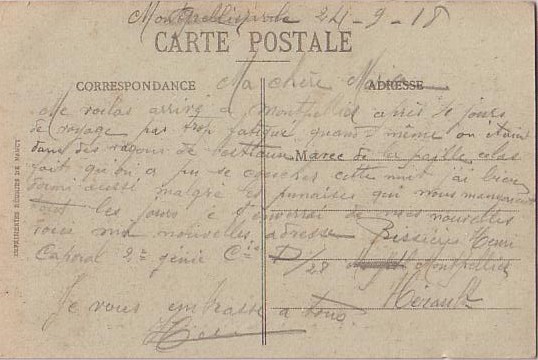 Montpellier le 24-9-18
CARTE POSTALE
CORRESPONDANCE
ADRESSE
Ma chère Maria
Me voilas arrivé a Montpellier après 4 jours
de voyage pas trop fatigué quand même on étais
dans des wagons de bestiaux avec de la paille celas
fait qu'on a pu se coucher cette nuit ai bien
dormi aussi malgré les punaises qui nous mangeaient
tout les jours d'envoyer de mes nouvelles
voici ma nouvelles adresse Henri
Caporal 2e génie Cie D/28 Montpellier
Hérault
Je vous embrasse a tous.
IMPRIMERIES RÉUNIES DE NANCY